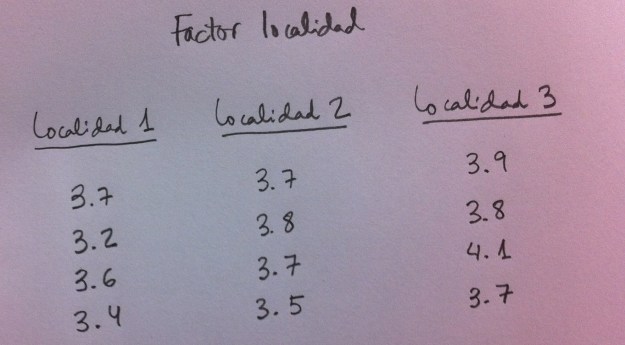 Factor localidad
Localidad 1 Localidad 2 Localidad 3
3.7 3.7 3.9
3.2 3.8 3.8
3.6 3.7 4.1
3.4 3.5 3.7